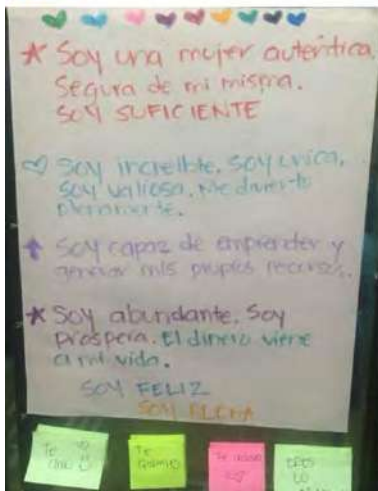 Soy una mujer auténtica,
Segura de mi misma.
SOY SUFICIENTE
Soy increíble, soy única,
Soy valiosa. Me divierto
plenamente.
Soy capaz de emprender y
generar mis propios recursos.
Soy abundante. Soy
próspera. El dinero viene
a mi vida.
SOY FELIZ
SOY
Te
Te
Te
ERES
LO